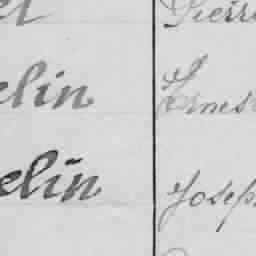 Pierre
elin Ernest
elin Joseph